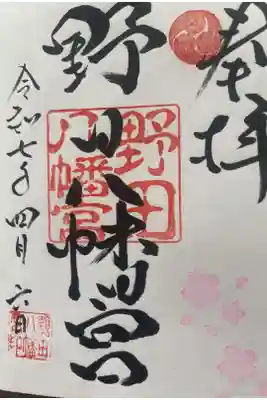 奉拝
野田八幡宮
野田
八幡宮
令和七年四月六日